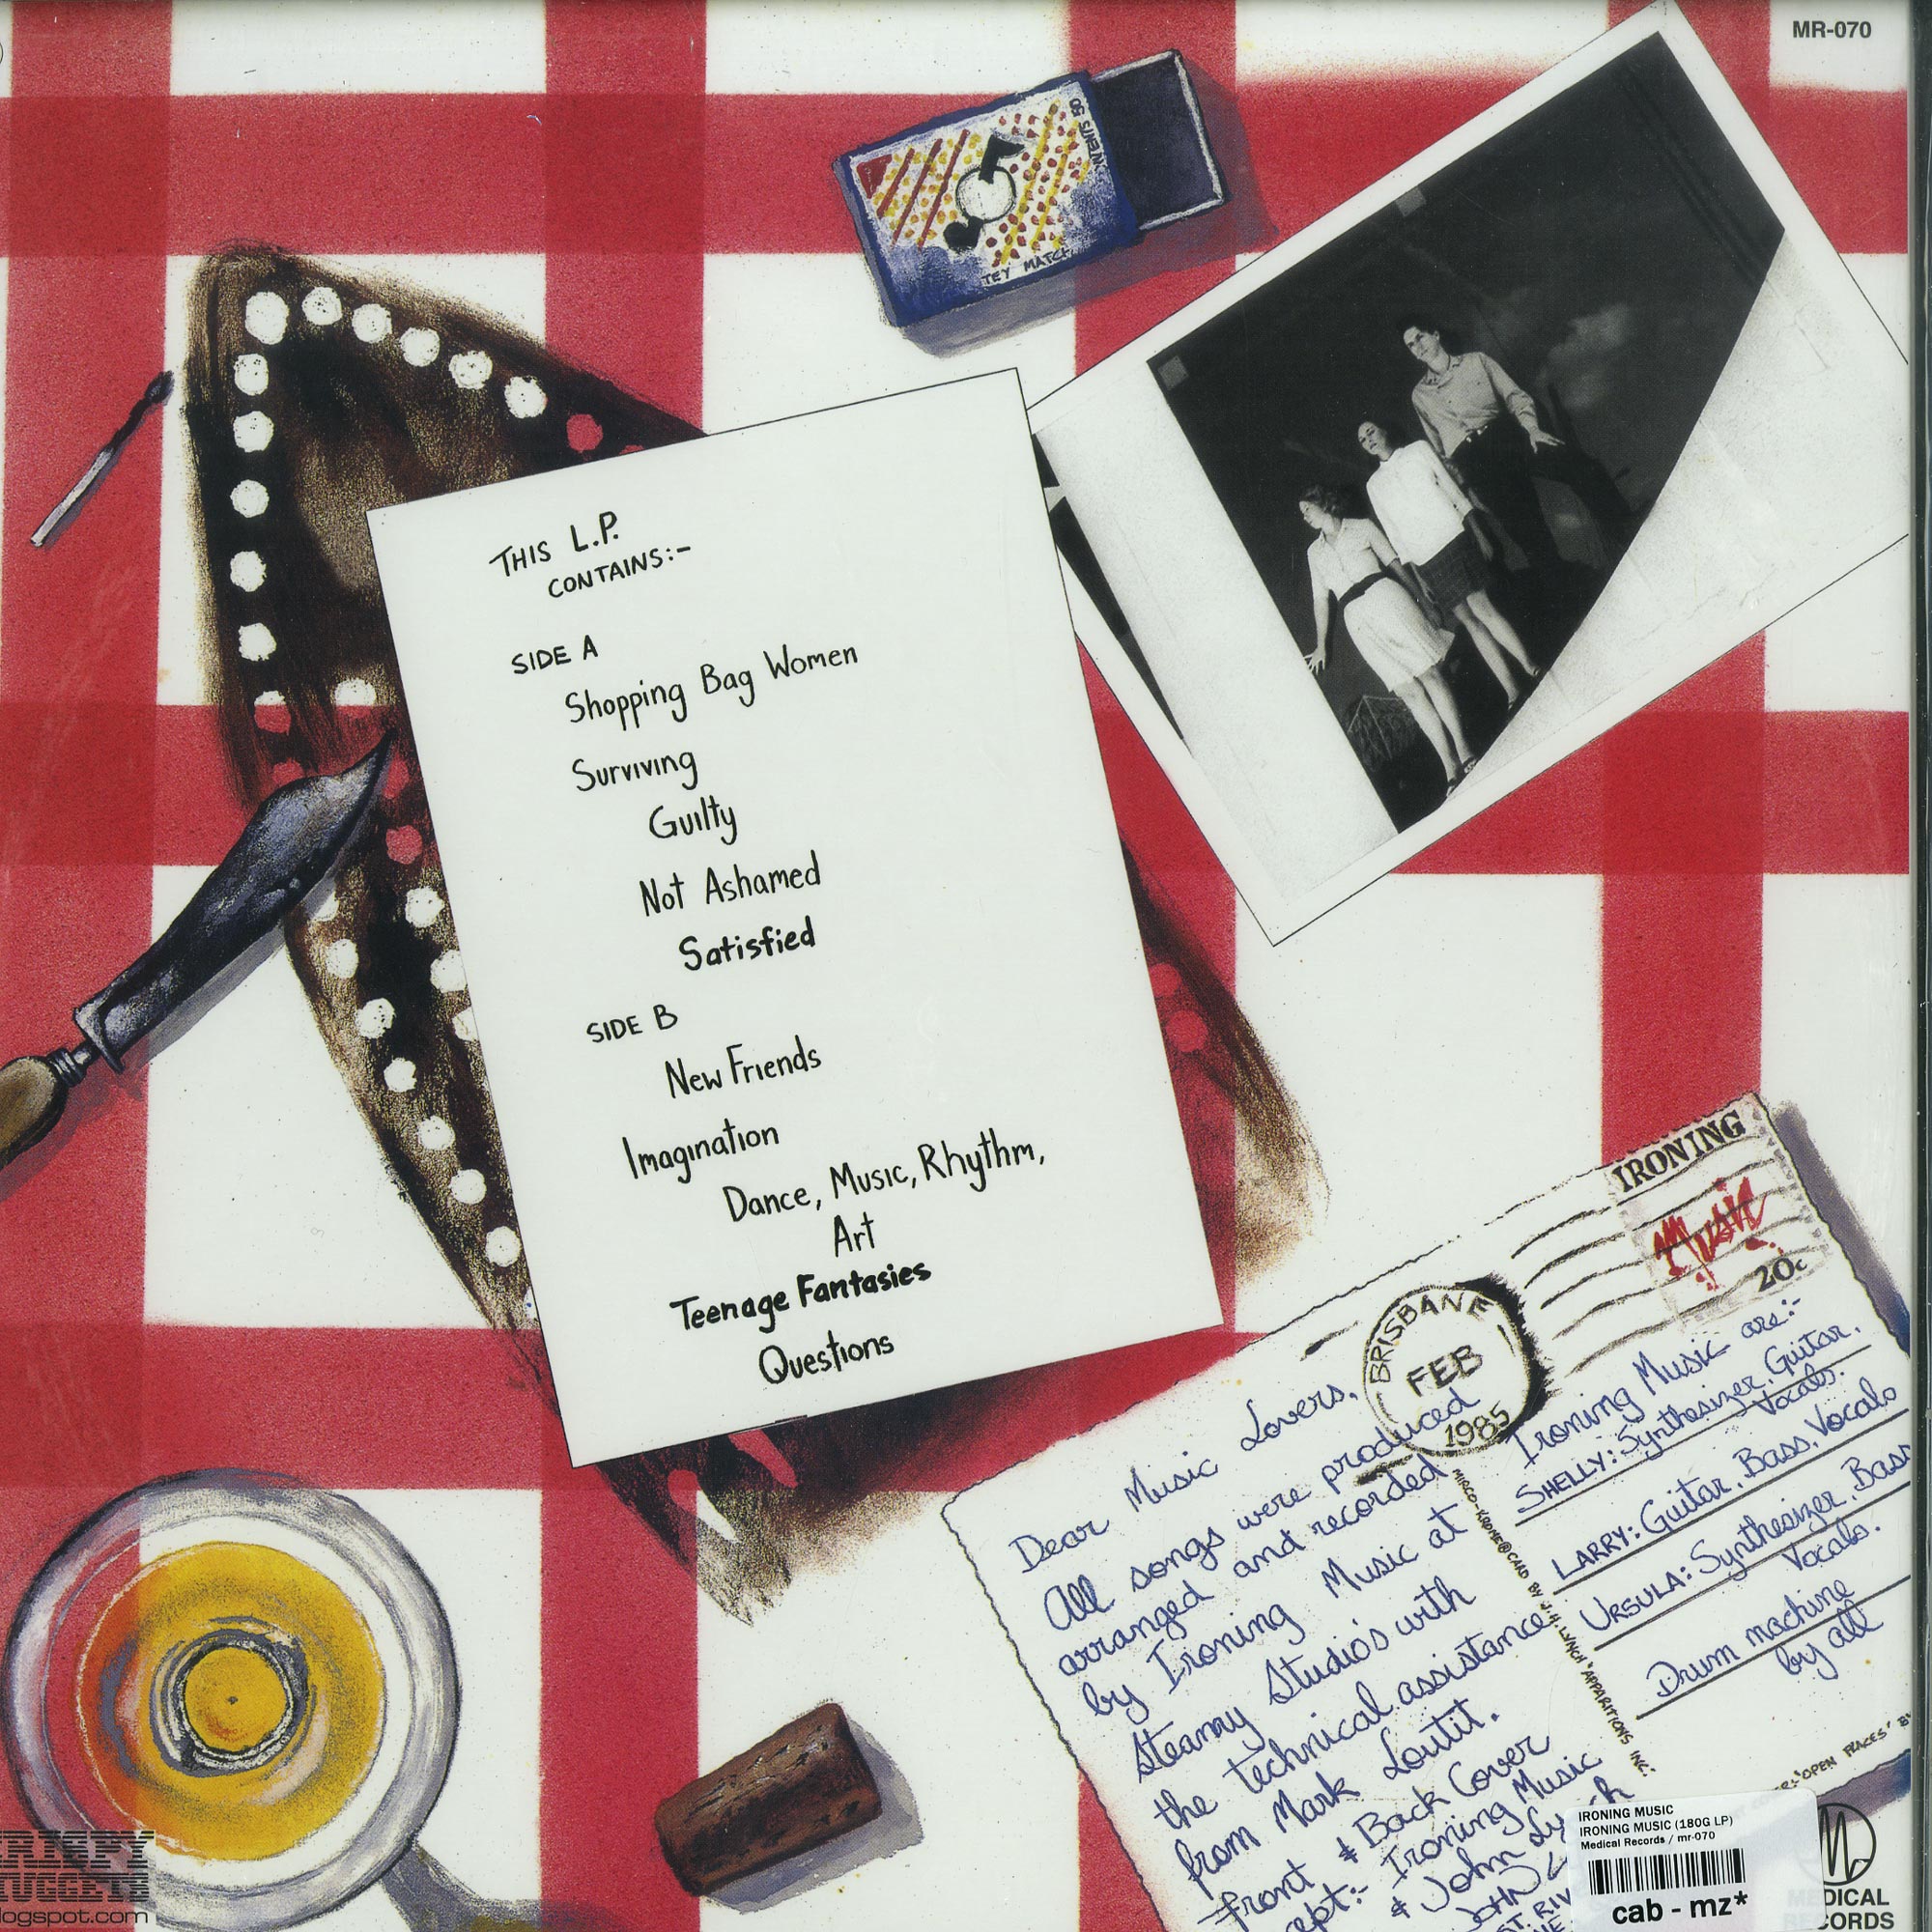 MR-070
CONTENTS 50
THIS L.P.
CONTAINS:-
SIDE A
Shopping Bag Women
Surviving
Guilty
Not Ashamed
Satisfied
SIDE B
New Friends
Imagination
Dance, Music, Rhythm,
Art
Teenage Fantasies
Questions
IRONING
Music
20c
BRISBANE
FEB
1985
Dear Music Lovers,
All songs were produced
arranged and recorded
by Ironing Music at
Steamy Studio's with
the technical assistance
from Mark Loutit.
Front & Back Cover
Ironing Music
& John
Ironing Music are:-
SHELLY: Synthesizer, Guitar,
Vocals.
LARRY: Guitar, Bass, Vocals
URSULA: Synthesizer, Bass
Vocals.
Drum machine
by all
BY J.H. LYNCH 'APPARITIONS INC.'
'OPEN PLACES'
IRONING MUSIC
IRONING MUSIC (180G LP)
Medical Records / mr-070
cab - mz*
MEDICAL
RECORDS